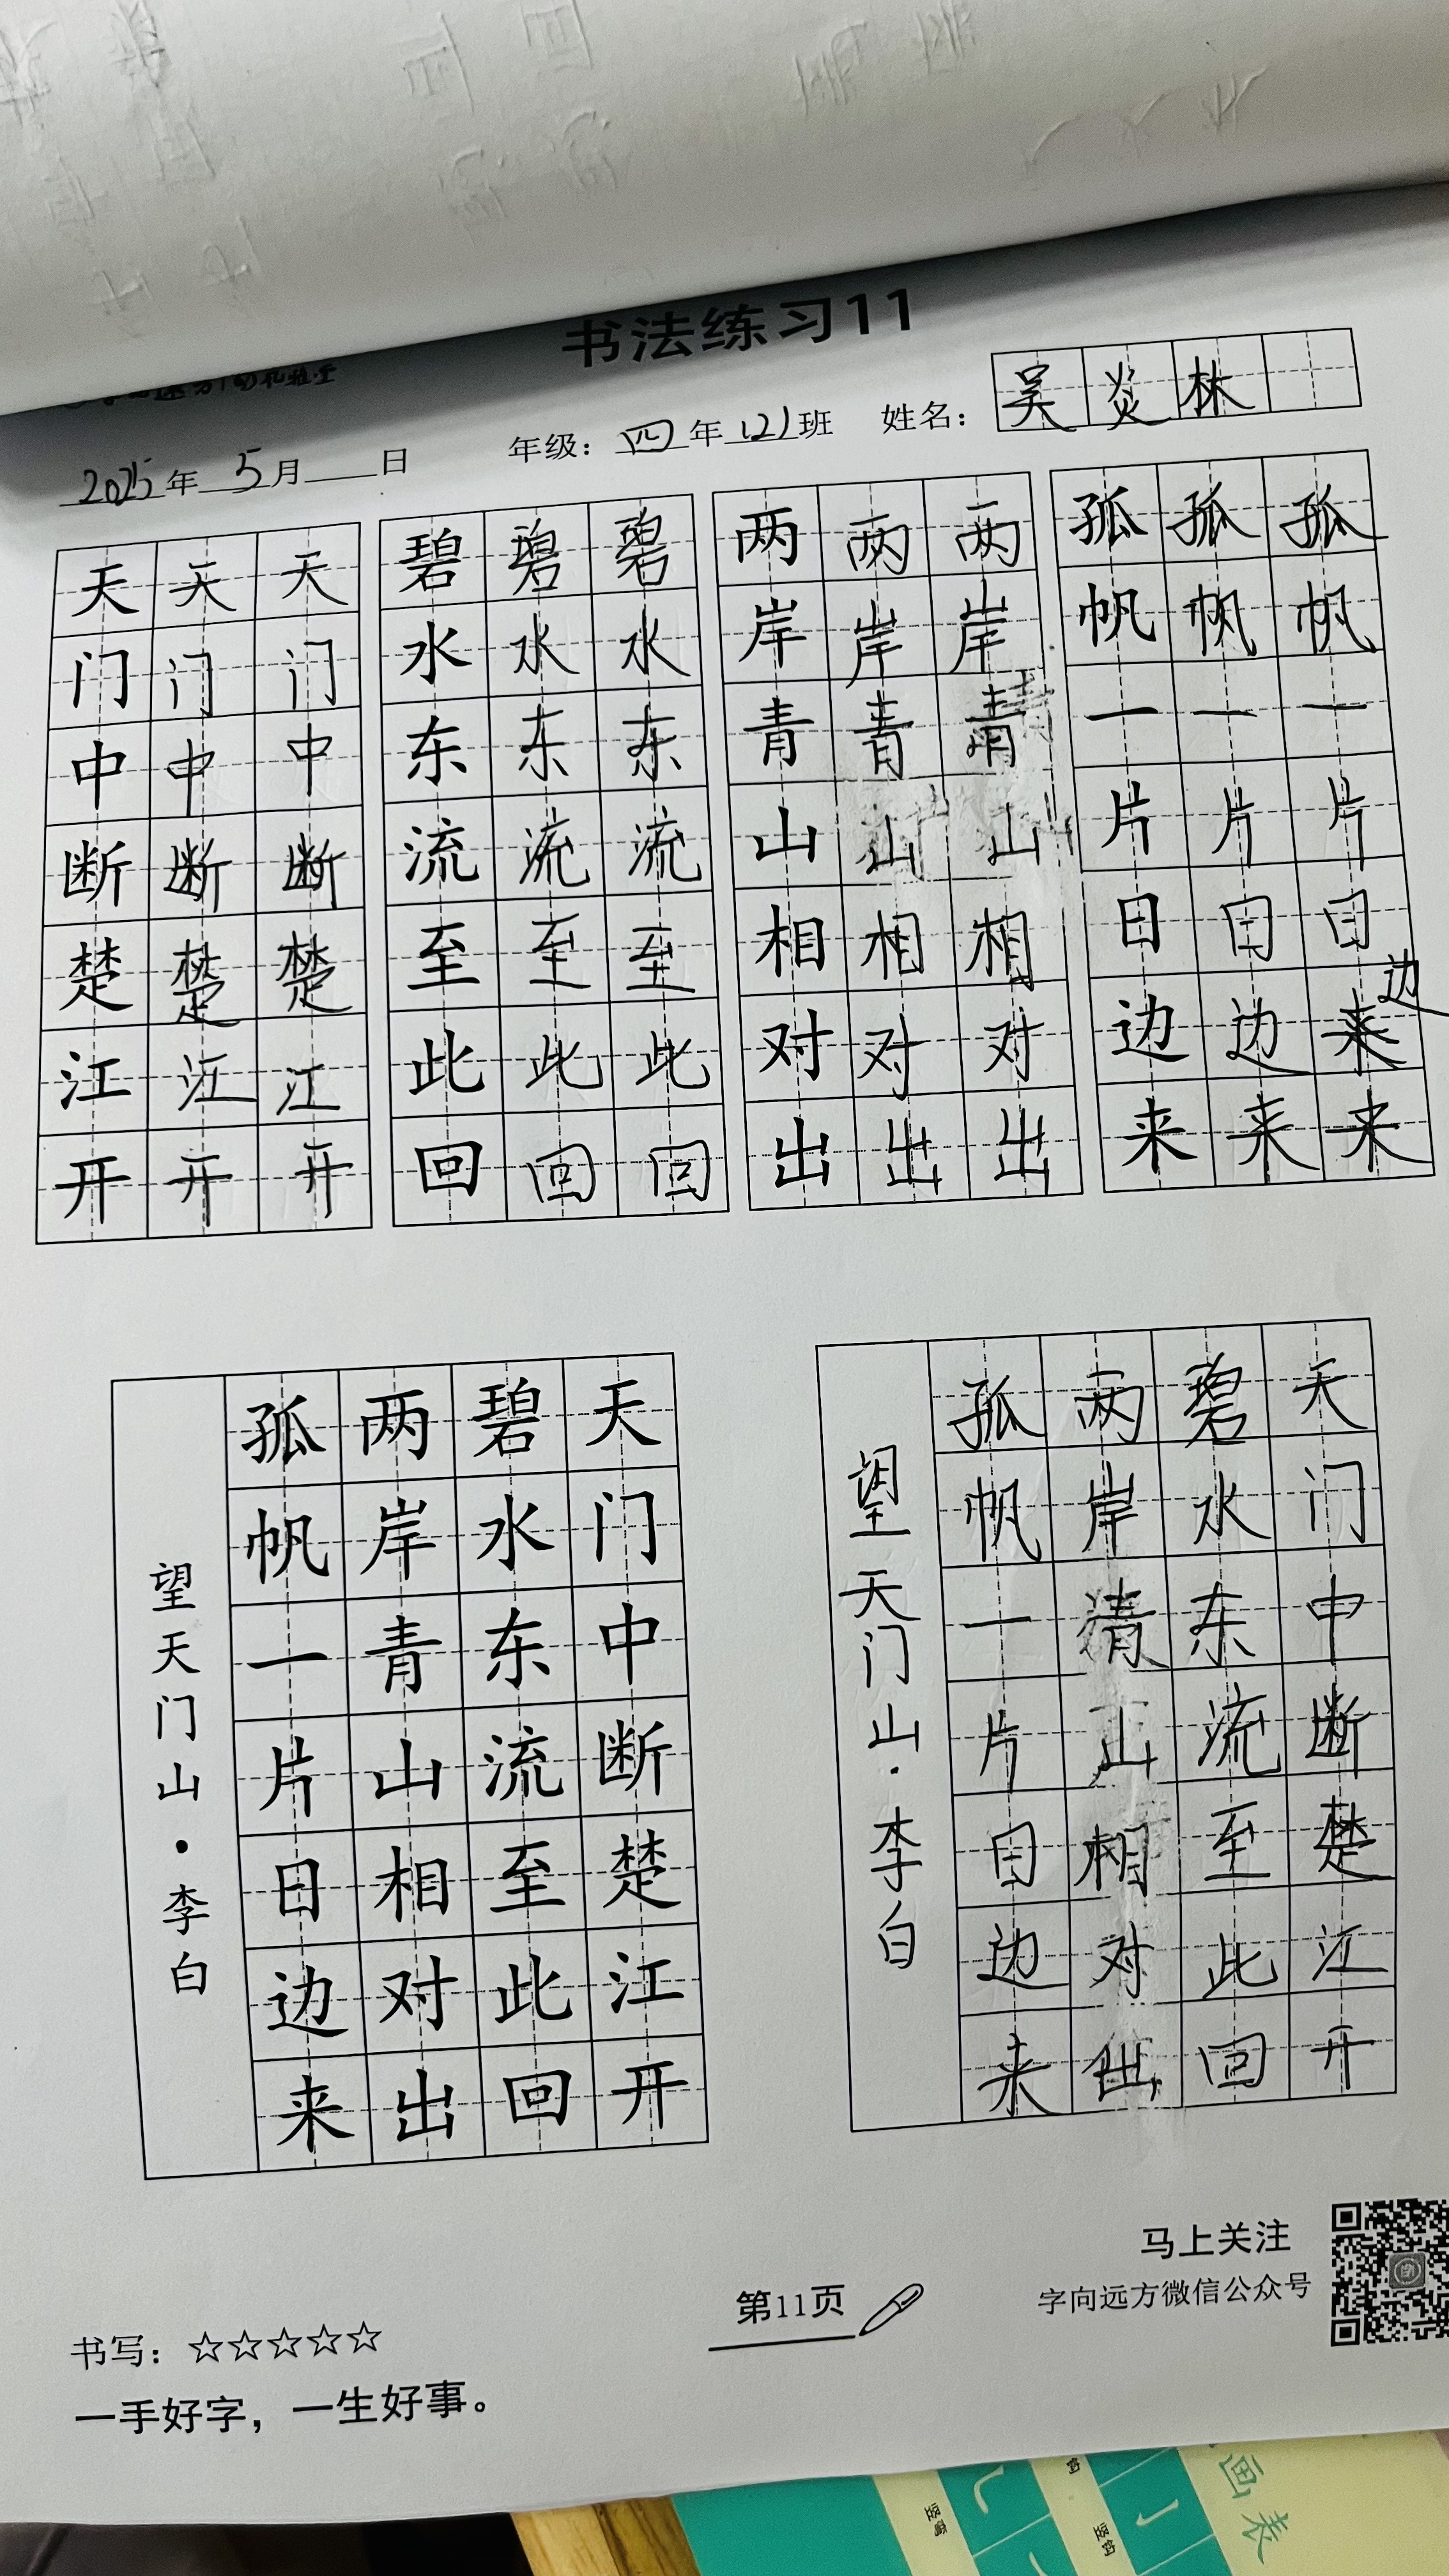 书法练习11
2025年5月 日 年级：四年(2)班 姓名：吴炎林
天天天 碧碧碧 两两两 孤孤孤
门门门 水水水 岸岸岸 帆帆帆
中中中 东东东 青青青 一一一
断断断 流流流 山山山 片片片
楚楚楚 至至至 相相相 日日日
江江江 此此此 对对对 边边来边
开开开 回回回 出出出 来来来
天门中断楚江开
碧水东流至此回
两岸青山相对出
孤帆一片日边来
望天门山·李白
天门中断楚江开
碧水东流至此回
两岸清山相对出
孤帆一片日边来
望天门山·李白
书写：☆☆☆☆☆
一手好字，一生好事。
第11页
马上关注
字向远方微信公众号
画表
竖弯
竖钩